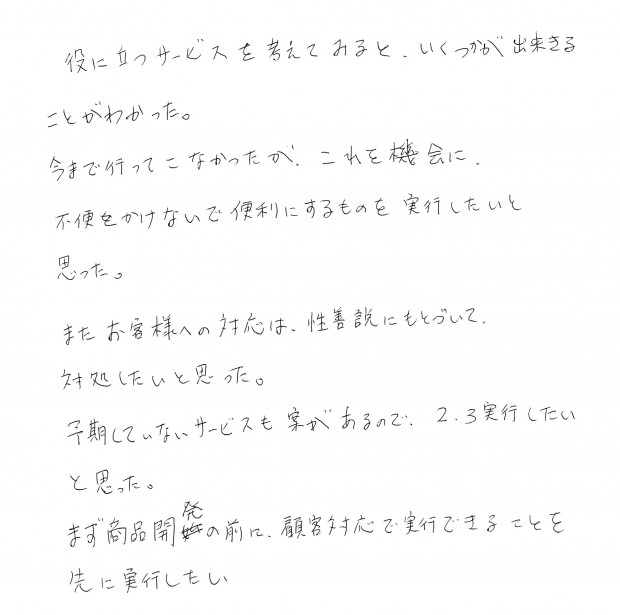 役に立つサービスを考えてみると、いくつかが出来きる
ことがわかった。
今まで行ってこなかったが、これを機会に、
不便をかけないで便利にするものを実行したいと
思った。
またお客様への対応は、性善説にもとづいて、
対処したいと思った。
予期していないサービスも案があるので、2.3実行したい
と思った。
まず商品開発の前に、顧客対応で実行できることを
先に実行したい